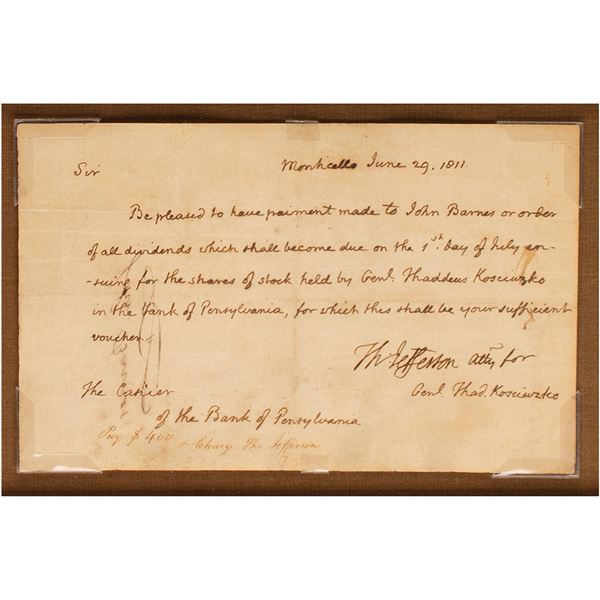 Sir Monticello June 29. 1811.
Be pleased to have paiment made to John Barnes or order
of all dividends which shall become due on the 1st day of July en-
-suing for the shares of stock held by Genl. Thaddeus Kosciuzko
in the bank of Pensylvania, for which this shall be your sufficient
voucher.
Th Jefferson atty for
Genl. Thad. Kosciuzko
The Cashier
of the Bank of Pensylvania
Pay $ 400
Charge Tho Jefferson